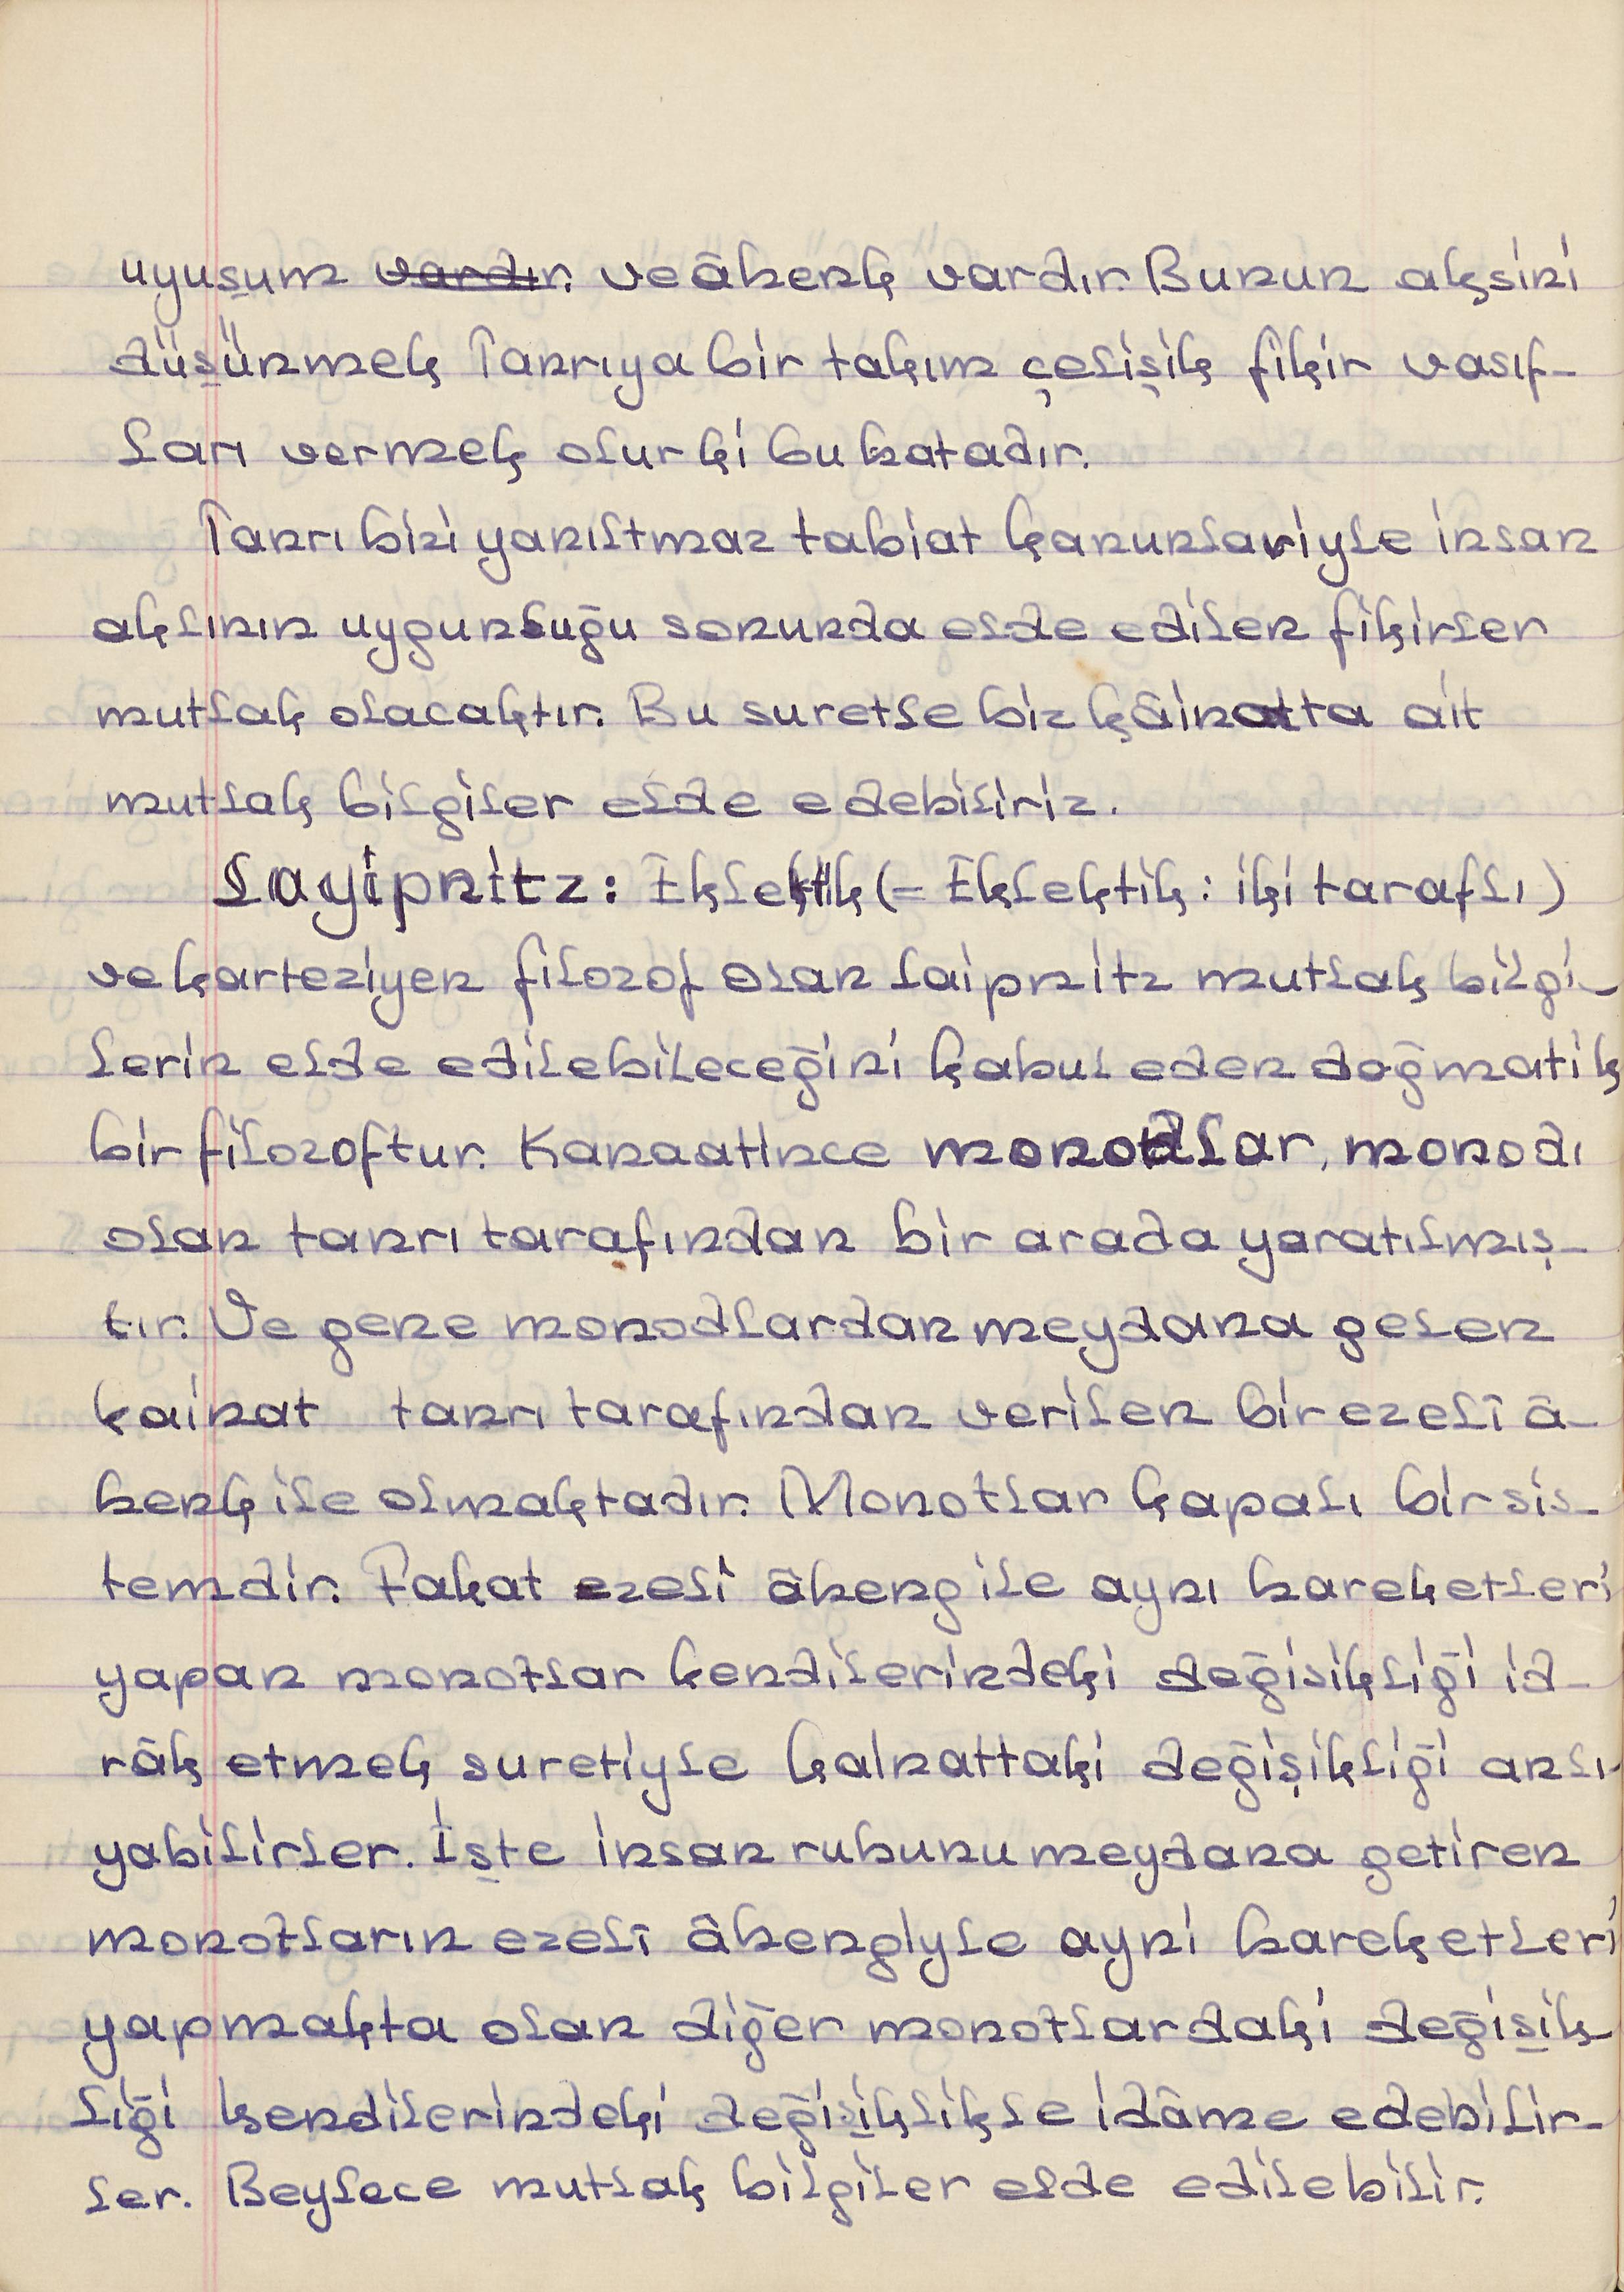 uyuşum vardır. ve âhenk vardır. Bunun aksini
düşünmek Tanrıya bir takım çelişik fikir vasıf-
ları vermek olur ki bu hatadır.
Tanrı bizi yanıltmaz tabiat kanunlariyle insan
aklının uygunluğu sonunda elde edilen fikirler
mutlak olacaktır. Bu suretle biz kâinatta ait
mutlak bilgiler elde edebiliriz.
Layipnitz: Eklektik (= Eklektik: iki taraflı)
ve karteziyen filozof olan laipnitz mutlak bilgi-
lerin elde edilebileceğini kabul eden doğmatik
bir filozoftur. Kanaatince monodlar, monodı
olan tanrı tarafından bir arada yaratılmış-
tır. Ve gene monodlardan meydana gelen
kainat tanrı tarafından verilen bir ezelî â-
henk ile olmaktadır. Monotlar kapalı bir sis-
temdir. Fakat ezeli âheng ile aynı hareketleri
yapan monotlar kendilerindeki değişikliği id-
râk etmek suretiyle kainattaki değişikliği anlı-
yabilirler. İşte insan ruhunu meydana getiren
monotların ezelî âhengiyle ayni hareketleri
yapmakta olan diğer monotlardaki değişik-
liği kendilerindeki değişiklikle idâme edebilir-
ler. Beylece mutlak bilgiler elde edilebilir.